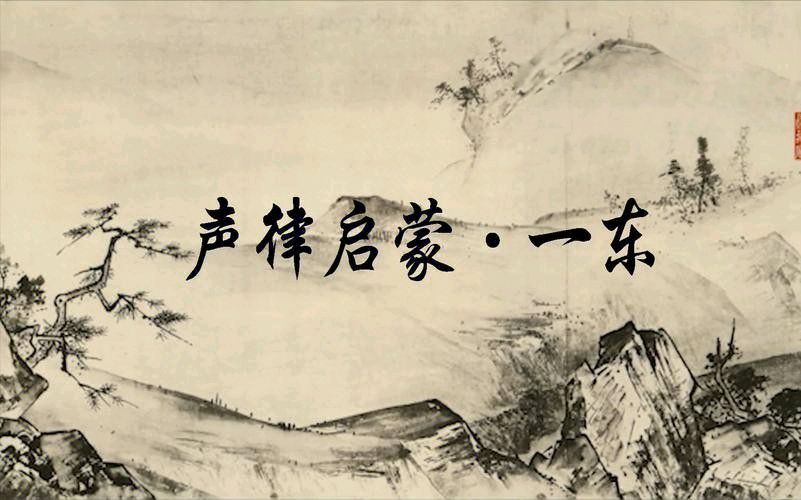 声律启蒙·一东